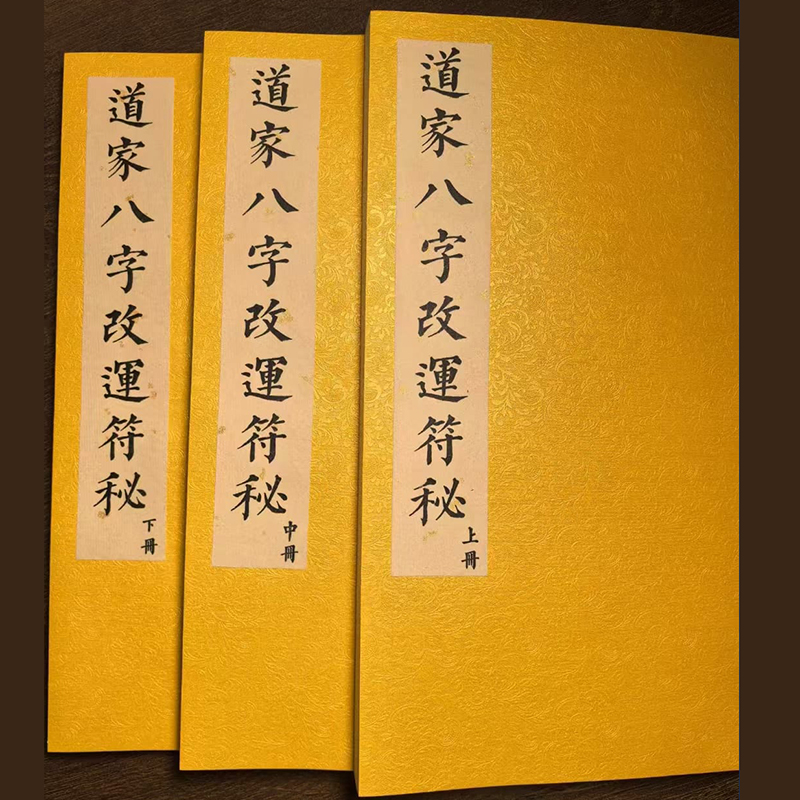 道家八字改運符秘
上冊
道家八字改運符秘
中冊
道家八字改運符秘
下冊